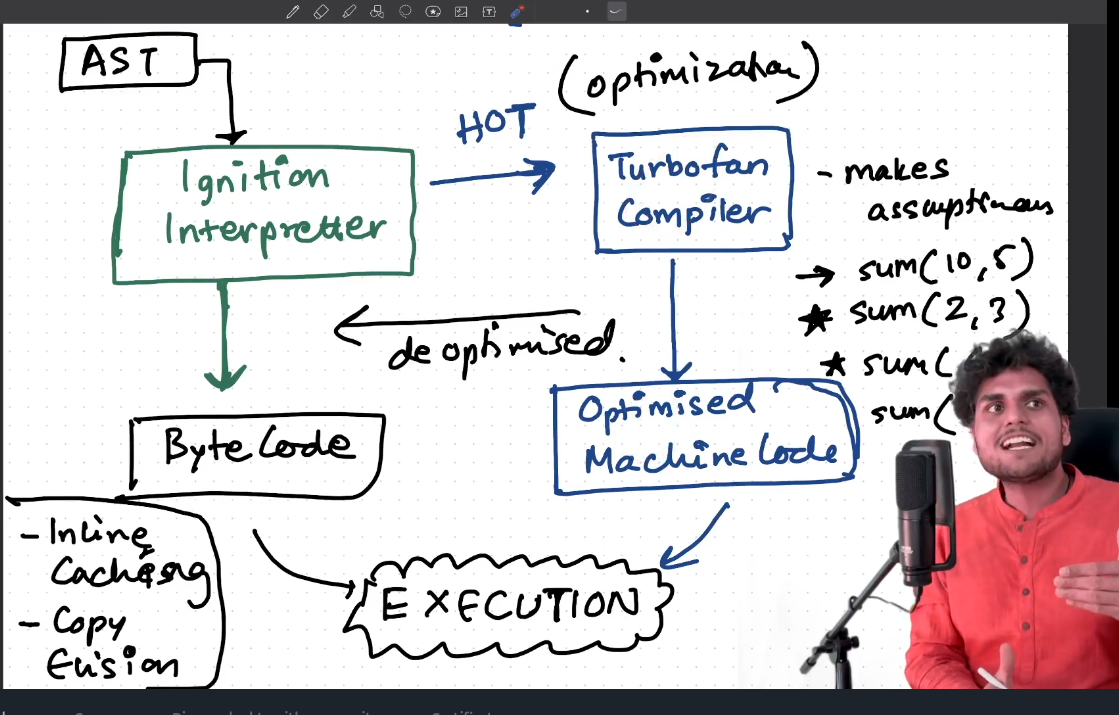 AST
(optimization)
HOT
Ignition
Interpretter
Turbofan
Compiler
- makes
assumptions
→ sum(10,5)
★ sum(2,3)
★ sum(
sum(
deoptimised.
Byte Code
Optimised
Machine Code
- Inline
Caching
- Copy
Elision
EXECUTION